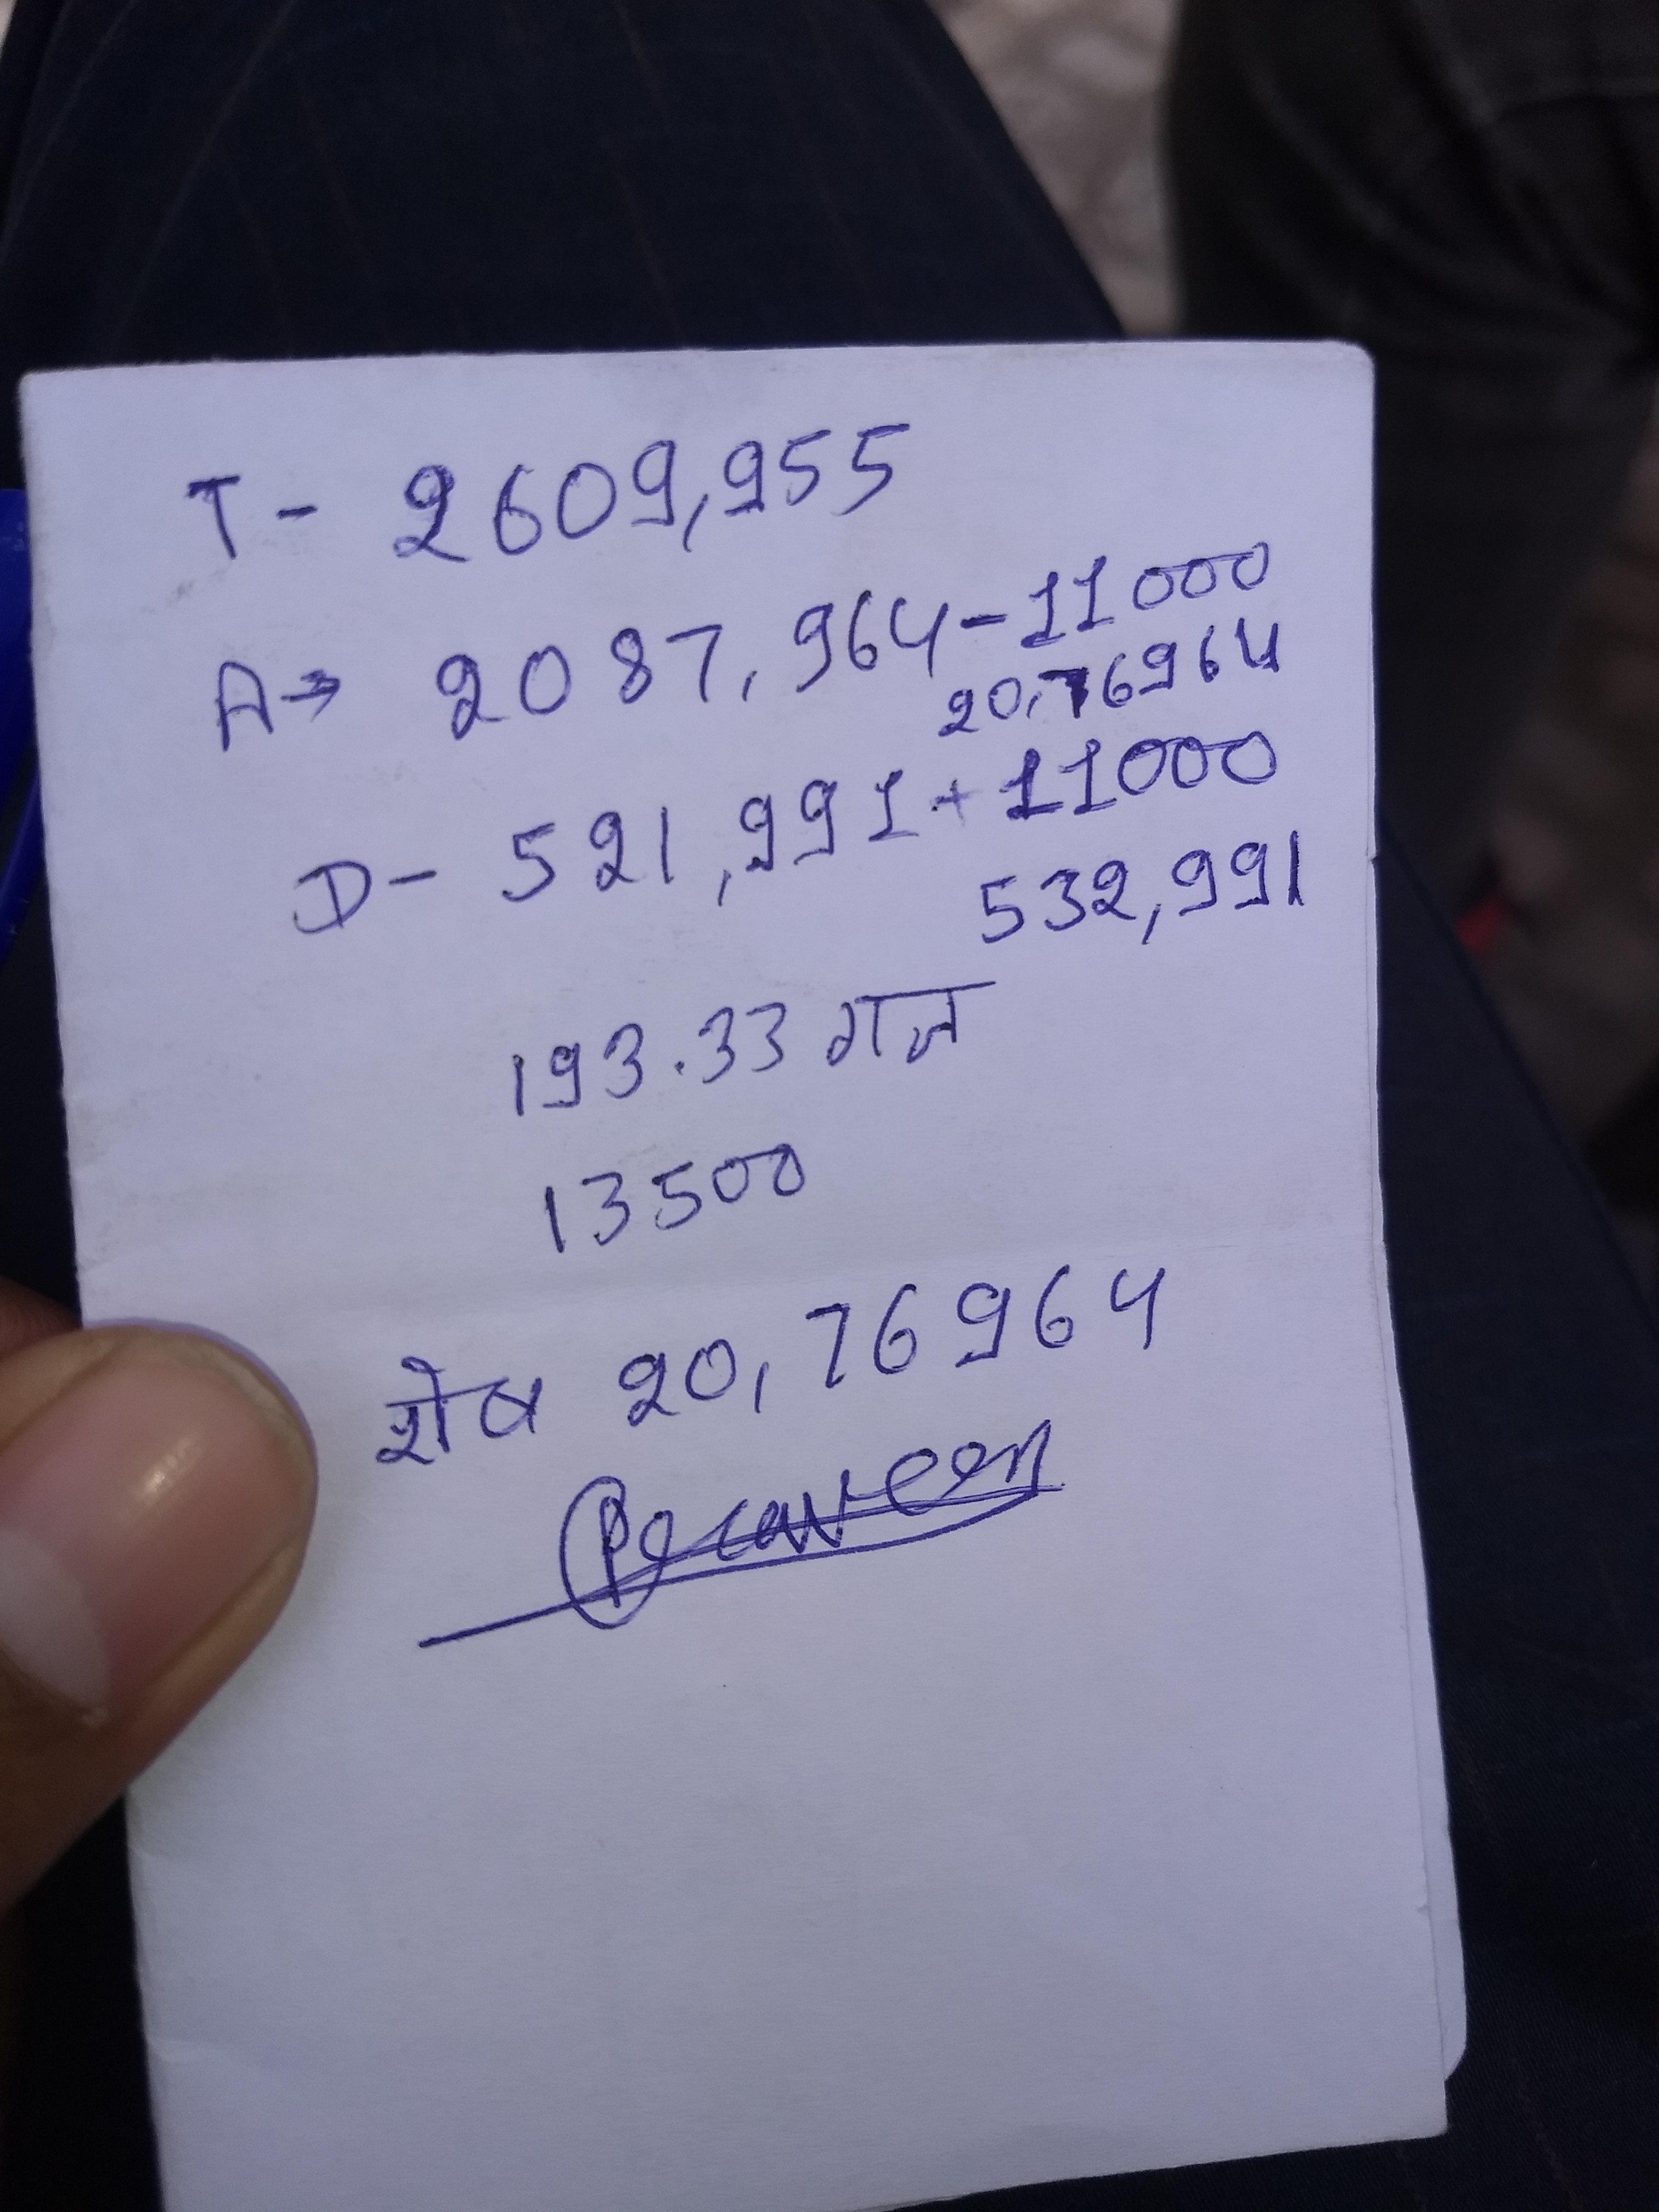 T- 2609,955
A→ 2087,964-11000
20,76964
D- 521,991+11000
532,991
193.33 गज
13500
शेष 20,76964
Praveen